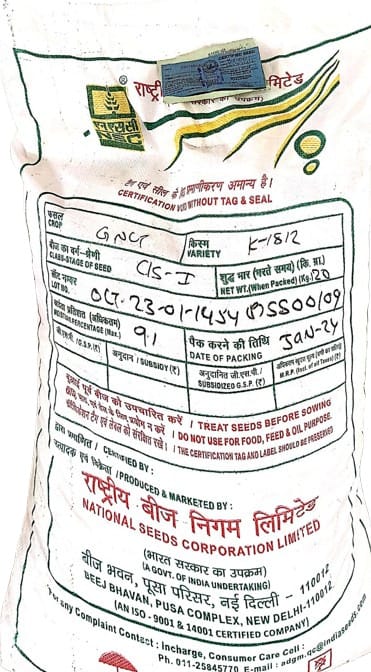 एनएससी
NSC
®
राष्ट्री मिटेड
CERTIFICATION VOID WITHOUT TAG & SEAL
फसल
CROP
GNUT
किस्म
VARIETY
K-1812
बीज का वर्ग-श्रेणी
CLASS-STAGE OF SEED
C/S-I
शुद्ध भार (भरते समय) (कि. ग्रा.)
NET WT. (When Packed) (Kg.)
20
लॉट नम्बर
LOT NO.
OCT-23-01-1454 (P)
MOISTURE PERCENTAGE (Max.)
9%
पैक करने की तिथि
DATE OF PACKING
JAN-24
जी.एस.पी. / G.S.P. (₹)
अनुदान / SUBSIDY (₹)
अनुदानित जी.एस.पी.
SUBSIDIZED G.S.P. (₹)
M.R.P. (Incl. of all Taxes) (₹)
बुआई पूर्व बीज को उपचारित करें | TREAT SEEDS BEFORE SOWING
DO NOT USE FOR FOOD, FEED & OIL PURPOSE.
THE CERTIFICATION TAG AND LABEL SHOULD BE PRESERVED
द्वारा प्रमाणित / CERTIFIED BY :
उत्पादक एवं विक्रेता / PRODUCED & MARKETED BY :
राष्ट्रीय बीज निगम लिमिटेड
NATIONAL SEEDS CORPORATION LIMITED
(भारत सरकार का उपक्रम)
(A GOVT. OF INDIA UNDERTAKING)
बीज भवन, पूसा परिसर, नई दिल्ली - 110012
BEEJ BHAVAN, PUSA COMPLEX, NEW DELHI-110012
(AN ISO - 9001 & 14001 CERTIFIED COMPANY)
For any Complaint Contact : Incharge, Consumer Care Cell :
Ph. 011-25845770 E-mail : adm.qc@indiaseeds.com